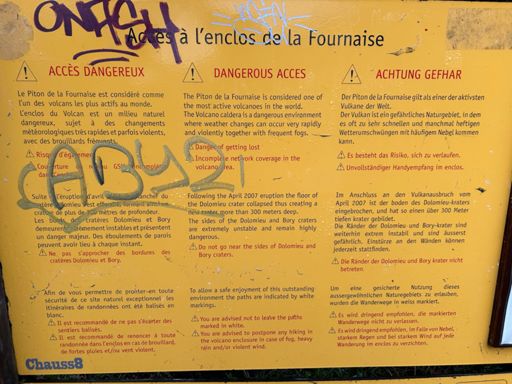 ONASH
Accès à l'enclos de la Fournaise
ACCÈS DANGEREUX
Le Piton de la Fournaise est considéré comme
l'un des volcans les plus actifs au monde.
L'enclos du Volcan est un milieu naturel
dangereux, sujet à des changements
météorologiques très rapides et parfois violents,
avec des brouillards fréquents.
Risque d'égarement
Couverture réseau GSM incomplète
Suite à l'éruption d'avril
cratère de plus de 300 mètres de profondeur.
Les bords des cratères Dolomieu et Bory
demeurent extrêmement instables et présentent
un danger majeur. Des éboulements de parois
peuvent avoir lieu à chaque instant.
Ne pas s'approcher des bordures des
cratères Dolomieu et Bory.
Afin de vous permettre de profiter en toute
sécurité de ce site naturel exceptionnel les
itinéraires de randonnées ont été balisés en
blanc.
Il est recommandé de ne pas s'écarter des
sentiers balisés.
Il est recommandé de renoncer à toute
randonnée dans l'enclos en cas de brouillard,
de fortes pluies et/ou vent violent.
DANGEROUS ACCES
The Piton de la Fournaise is considered one of
the most active volcanoes in the world.
The Volcano caldera is a dangerous environment
where weather changes can occur very rapidly
and violently together with frequent fogs.
Danger of getting lost
Incomplete network coverage in the
volcano area.
Following the April 2007 eruption the floor of
the Dolomieu crater collapsed thus creating a
new crater more than 300 meters deep.
The sides of the Dolomieu and Bory craters
are extremely unstable and remain highly
dangerous.
Do not go near the sides of Dolomieu and
Bory craters.
To allow a safe enjoyment of this outstanding
environment the paths are indicated by white
markings.
You are advised not to leave the paths
marked in white.
You are advised to postpone any hiking in
the volcano enclosure in case of fog, heavy
rain and/or violent wind.
ACHTUNG GEFHAR
Der Piton de la Fournaise gilt als einer der aktivsten
Vulkane der Welt.
Der Vulkan ist ein gefährliches Naturgebiet, in dem
es oft zu sehr schnellen und manchmal heftigen
Wetterumschwüngen mit häufigem Nebel kommen
kann.
Es besteht das Risiko, sich zu verlaufen.
Unvollständiger Handyempfang im enclos.
Im Anschluss an den Vulkanausbruch vom
April 2007 ist der boden des Dolomieu-kraters
eingebrochen, und hat so einen über 300 Meter
tiefen krater gebildet.
Die Ränder der Dolomieu- und Bory-krater sind
weiterhin extrem instabil und sind äusserst
gefährlich. Einstürze an den Wänden können
jederzeit stattfinden.
Die Ränder der Dolomieu- und Bory-krater nicht
betreten.
Um eine gesicherte Nutzung dieses
aussergewöhnlichen Naturgebiets zu erlauben,
wurden die Wanderwege in weiss markiert.
Es wird dringend empfohlen, die markierten
Wanderwege nicht zu verlassen.
Es wird dringend empfohlen, im Falle von Nebel,
starken Regen und bei starkem Wind auf jede
Wanderung im enclos zu verzichten.
Chauss8